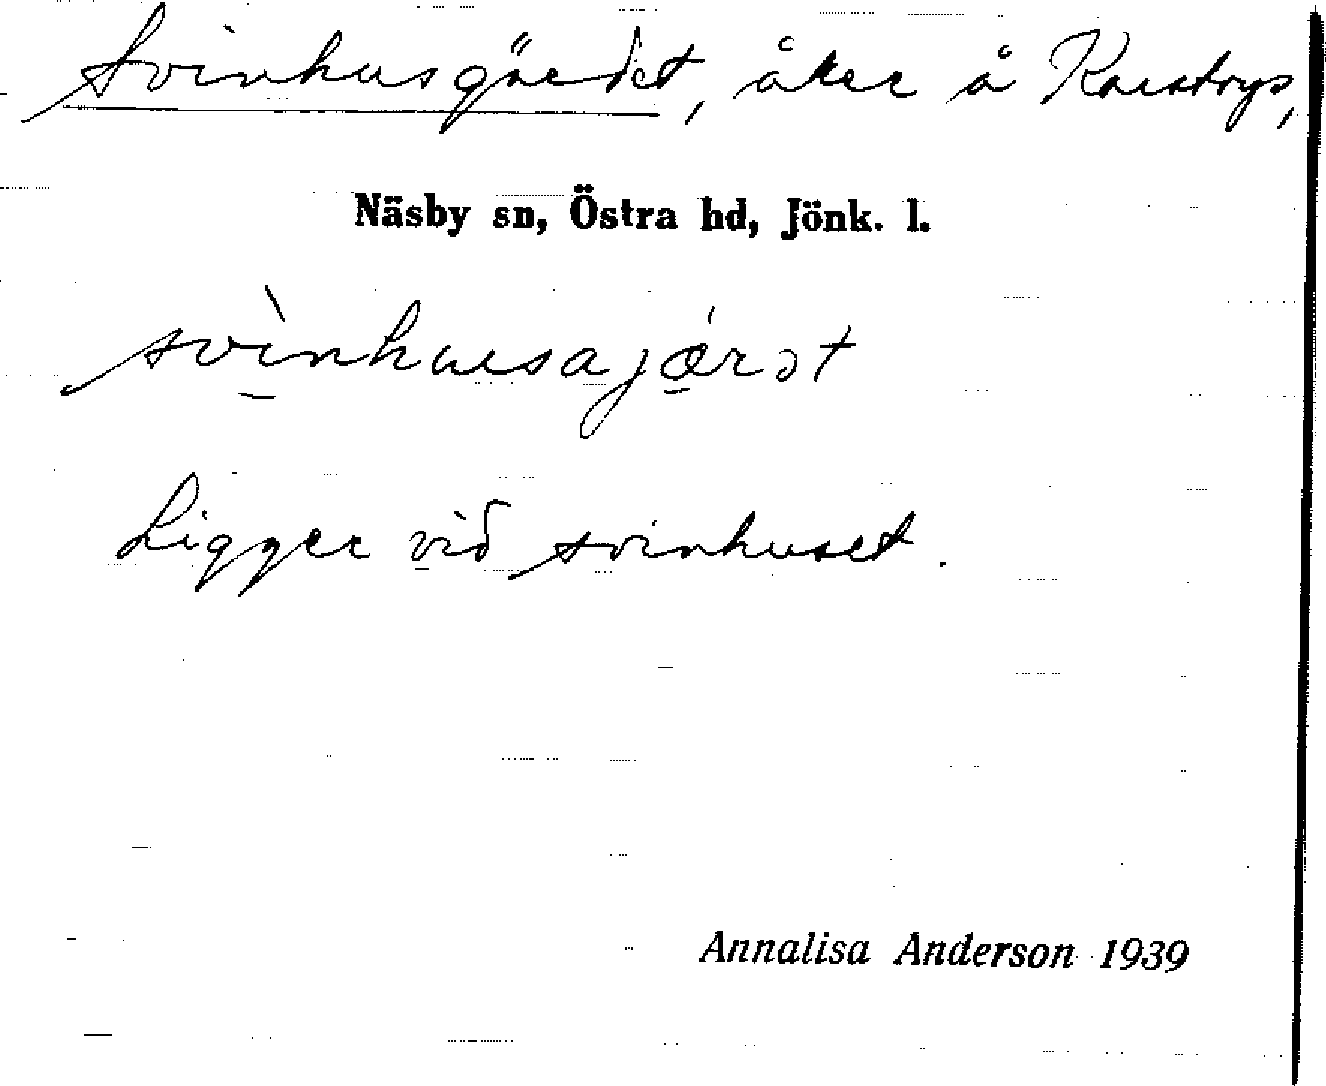 Svinhusgärdet, åker å Karstorp,
Näsby sn, Östra hd, Jönk. l.
svìnhusajǽrət
Ligger vid svinhuset.
Annalisa Anderson 1939